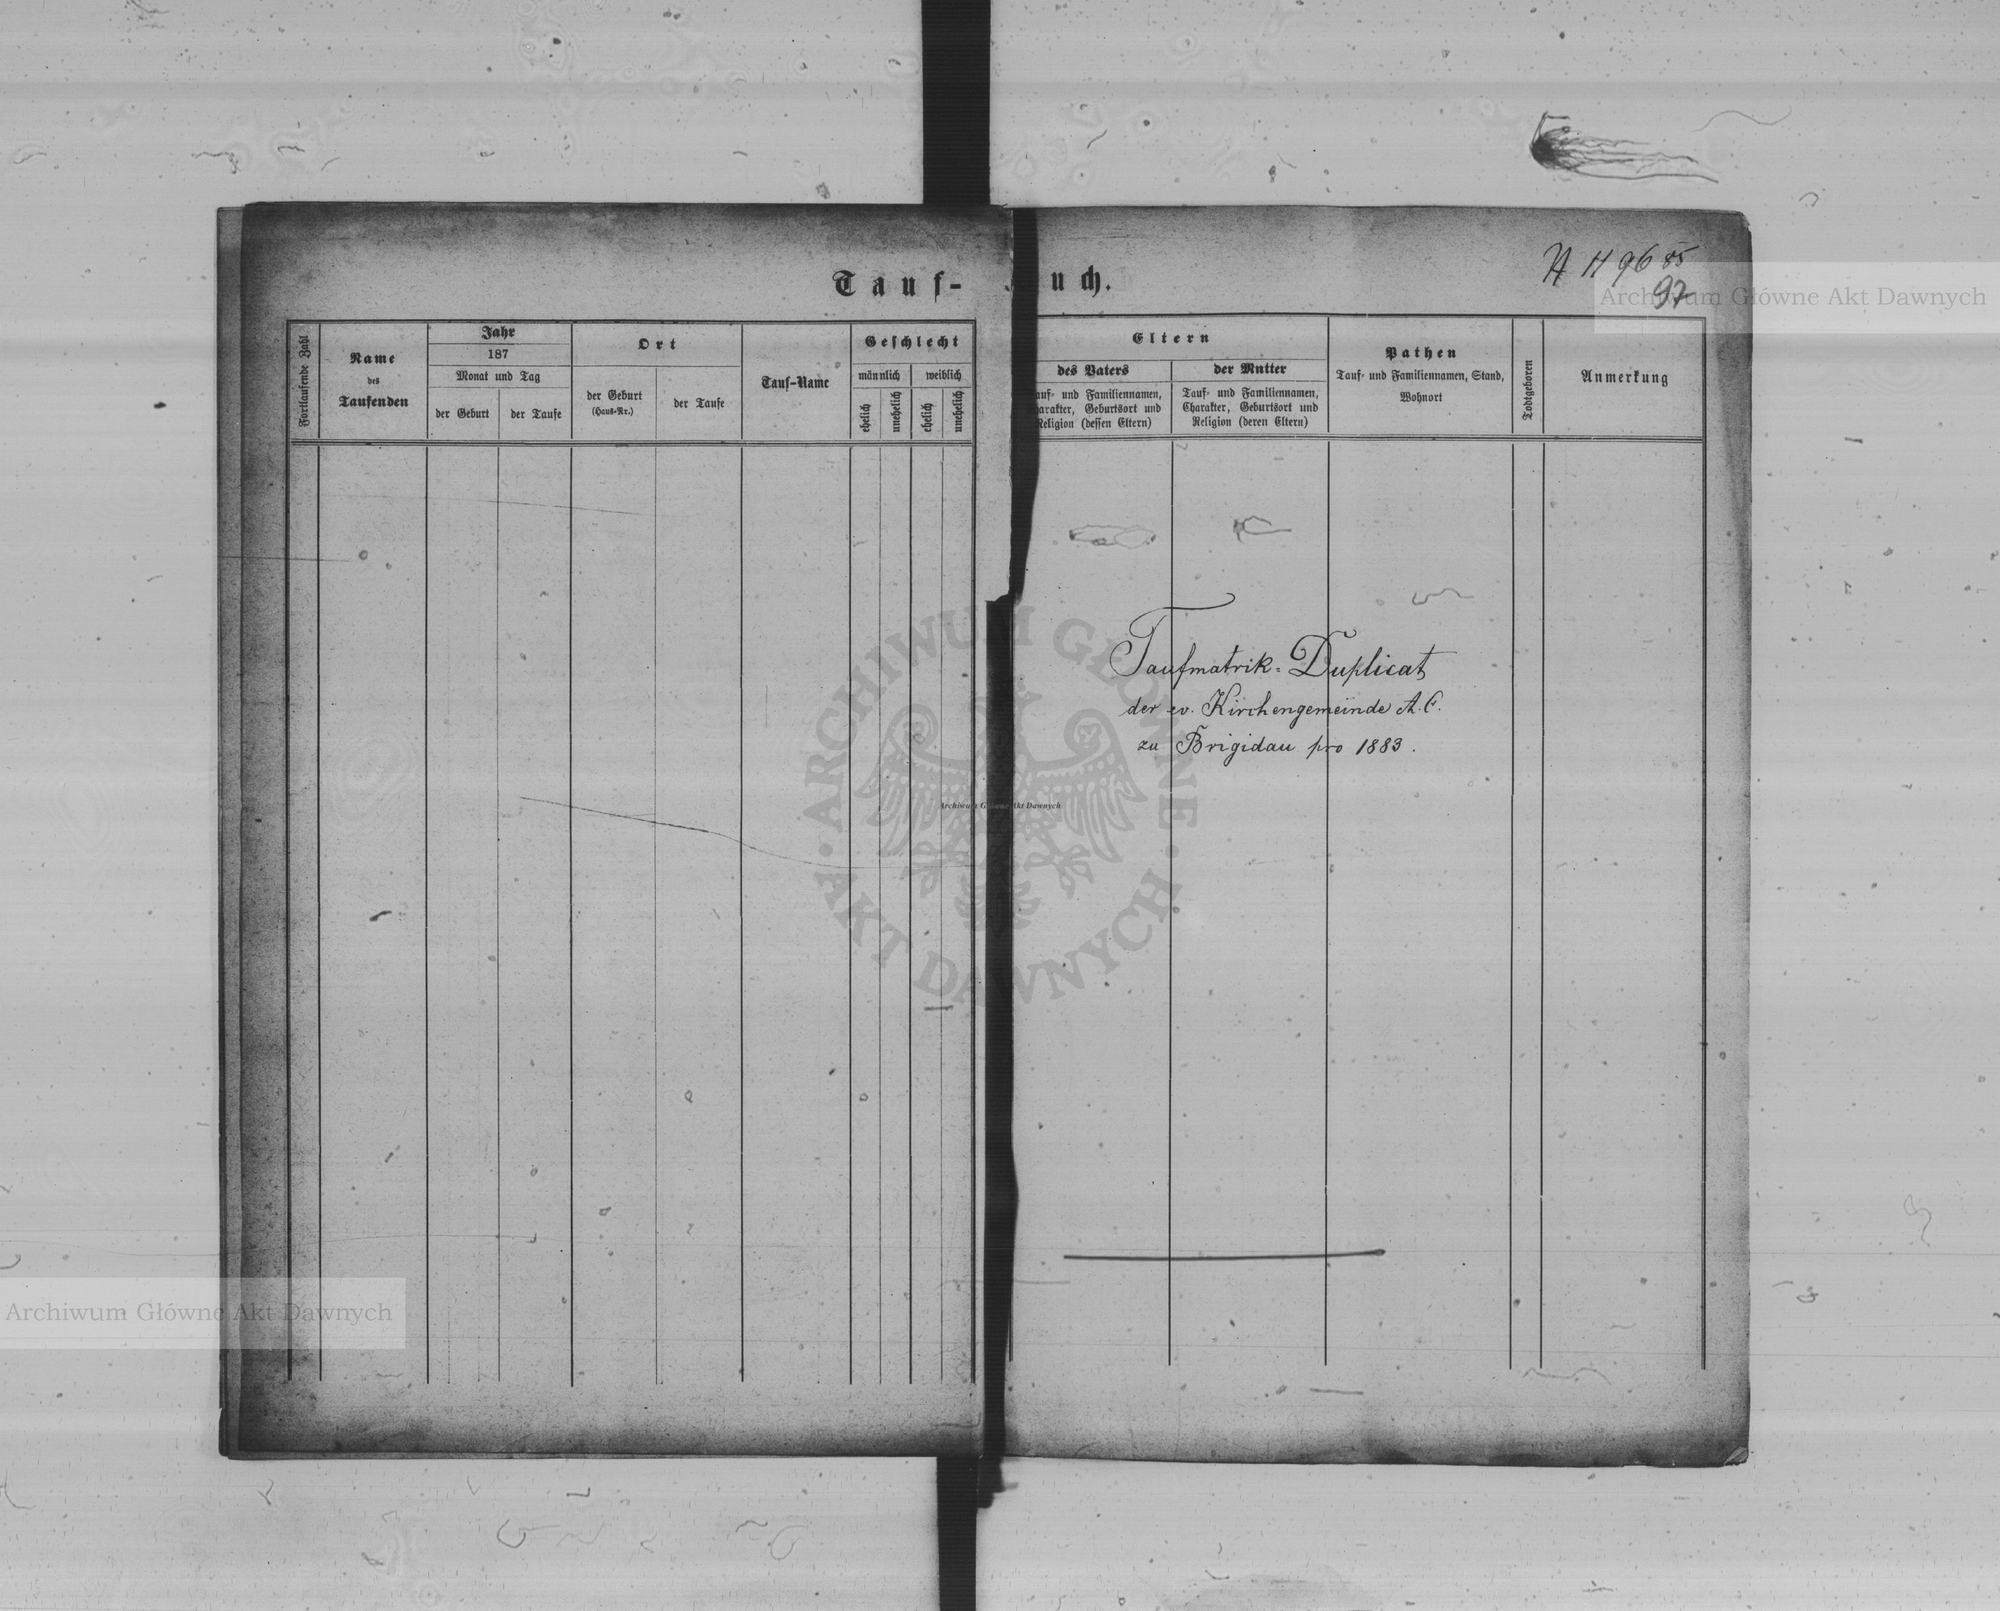 Tauf-
uch.
96 85
97
Fortlaufende Zahl
Name
des
Taufenden
Jahr
187
Monat und Tag
der Geburt
der Taufe
Ort
der Geburt
(Haus-Nr.)
der Taufe
Tauf-Name
Geschlecht
männlich
weiblich
ehelich
unehelich
ehelich
unehelich
Eltern
des Vaters
auf- und Familiennamen,
harakter, Geburtsort und
Religion (dessen Eltern)
der Mutter
Tauf- und Familiennamen,
Charakter, Geburtsort und
Religion (deren Eltern)
Pathen
Tauf- und Familiennamen, Stand,
Wohnort
Todtgeboren
Anmerkung
Taufmatrik-Duplicat
der ev. Kirchengemeinde A. C.
zu Brigidau pro 1883.
Archiwum Główne Akt Dawnych
ARCHIWUM GŁÓWNE
AKT DAWNYCH
Archiwum Główne Akt Dawnych
Archiwum Główne Akt Dawnych